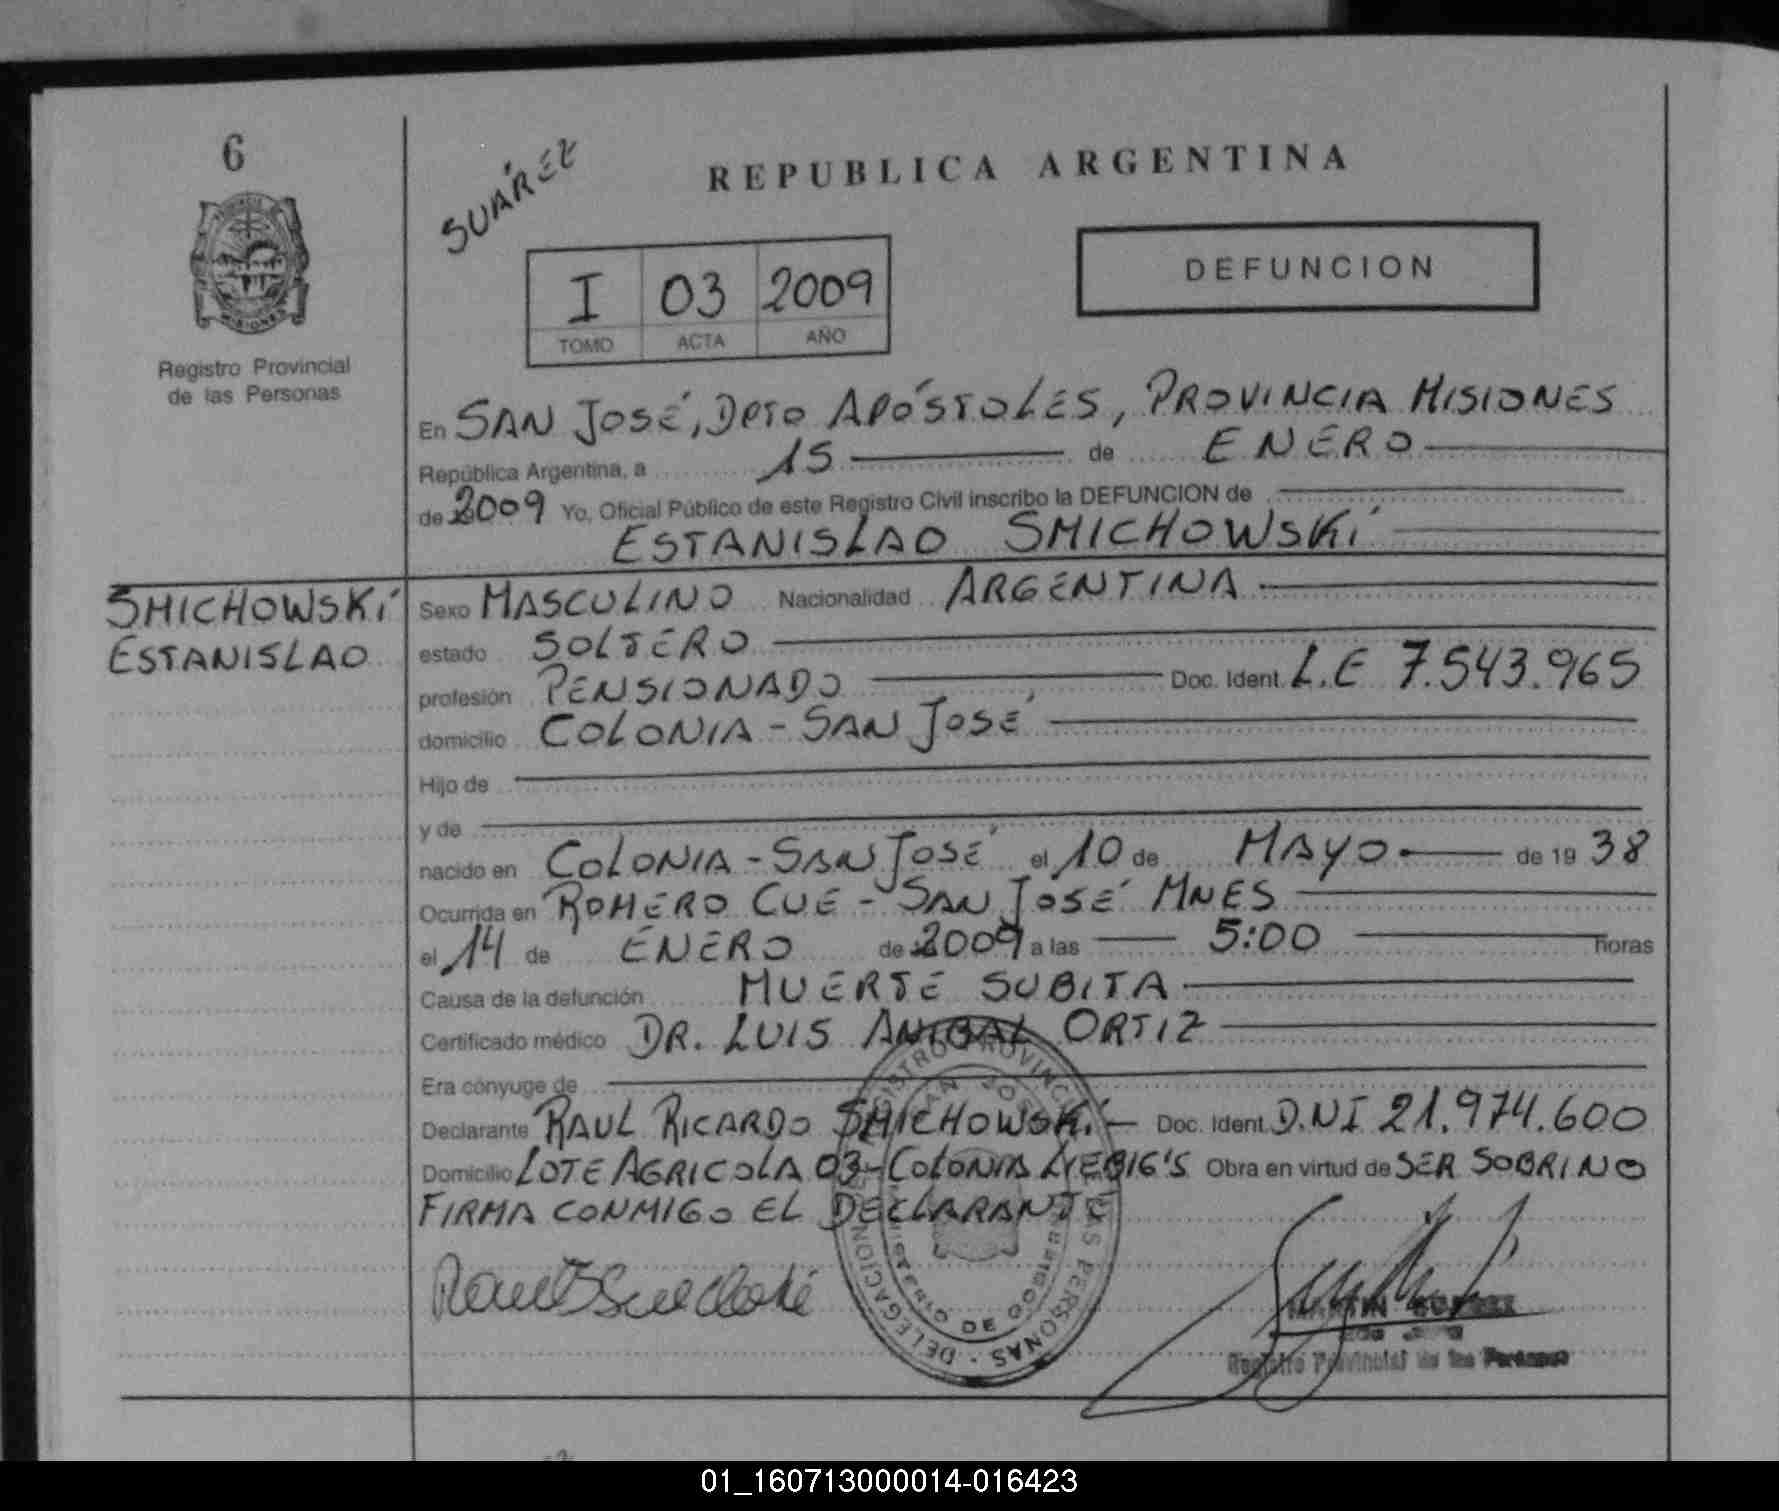 6
SUÁREZ
REPUBLICA ARGENTINA
PROVINCIA
MISIONES
I 03 2009
TOMO ACTA AÑO
DEFUNCION
Registro Provincial
de las Personas
En SAN JOSÉ, DPTO APÓSTOLES, PROVINCIA MISIONES
República Argentina, a 15 de ENERO
de 2009 Yo, Oficial Público de este Registro Civil inscribo la DEFUNCION de
ESTANISLAO SMICHOWSKÍ
SMICHOWSKÍ
ESTANISLAO
Sexo MASCULINO Nacionalidad ARGENTINA
estado SOLTERO
profesión PENSIONADO Doc. Ident. L.E 7.543.965
domicilio COLONIA - SAN JOSÉ
Hijo de
y de
nacido en COLONIA - SAN JOSÉ el 10 de MAYO de 19 38
Ocurrida en ROMERO CUÉ - SAN JOSÉ MNES
el 14 de ENERO de 2009 a las 5:00 horas
Causa de la defunción MUERTE SUBITA
Certificado médico DR. LUIS ANIBAL ORTIZ
Era cónyuge de
Declarante RAUL RICARDO SMICHOWSKÍ Doc. Ident. D.N.I 21.974.600
Domicilio LOTE AGRICOLA 03 - COLONIA LIEBIG'S Obra en virtud de SER SOBRINO
FIRMA CONMIGO EL DECLARANTE
REGISTRO PROVINCIAL DE LAS PERSONAS - DELEGACION
SAN JOSE
MINISTERIO DE GOBIERNO
MARTIN SUAREZ
Registro Provincial de las Personas
01_160713000014-016423